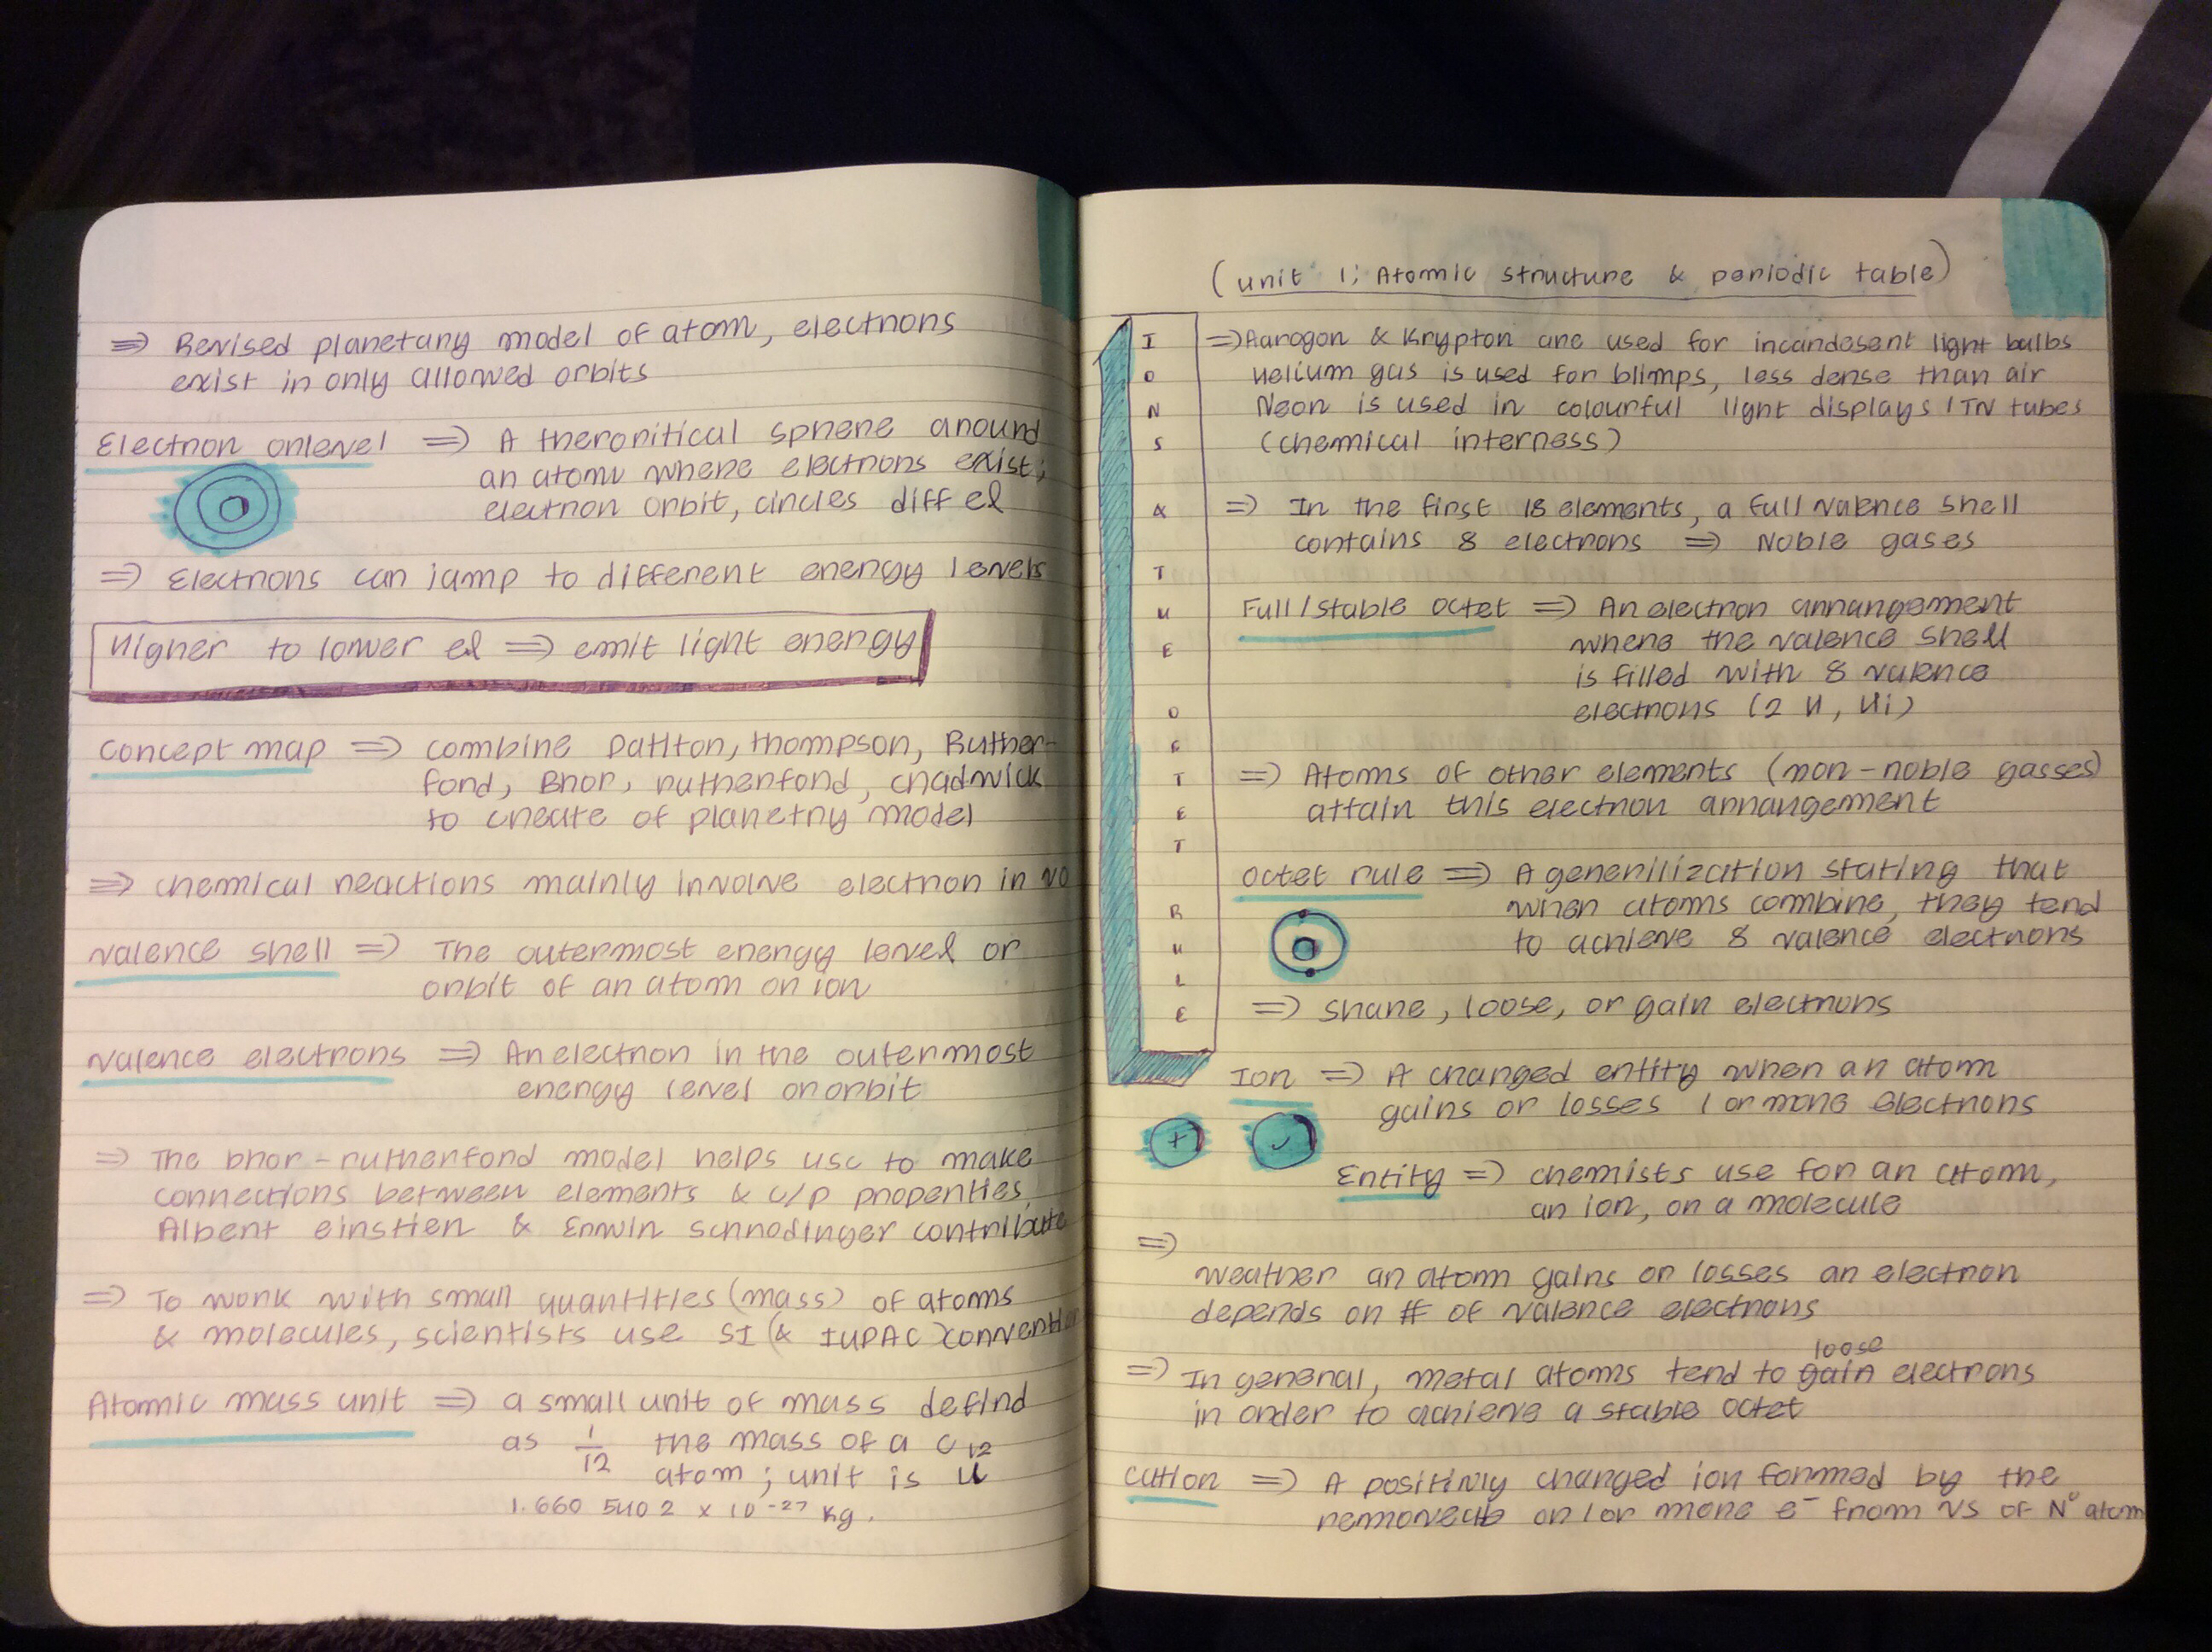 ⇒ Revised planetary model of atom, electrons
exist in only allowed orbits
Electron orlevel ⇒ A theroritical sphere around
an atom where electrons exist;
electron orbit, circles diff el
⇒ Electrons can jamp to different energy levels
Higher to lower el ⇒ emit light energy
concept map ⇒ combine Daltton, thompson, Ruther-
ford, Bhor, rutherford, chadwick
to create of planetry model
⇒ chemical reactions mainly involve electron in vo
valence shell ⇒ The outermost energy level or
orbit of an atom or ion
valence electrons ⇒ An electron in the outermost
energy level or orbit
⇒ The bhor-rutherford model helps use to make
connections between elements & c/p properties,
Albert einstien & Erwin schrodinger contribute
⇒ To work with small quantities (mass) of atoms
& molecules, scientists use SI (& IUPAC) convention
Atomic mass unit ⇒ a small unit of mass defind
as 1/12 the mass of a C12
atom; unit is u
1.660 5402 x 10⁻²⁷ kg.
(unit 1; Atomic structure & periodic table)
IONS & THE OCTET RULE
⇒ Aarogon & Krypton are used for incandesent light bulbs
Helium gas is used for blimps, less dense than air
Neon is used in colourful light displays / TN tubes
(chemical interness)
⇒ In the first 18 elements, a full valence shell
contains 8 electrons ⇒ Noble gases
Full/stable octet ⇒ An electron arrangement
where the valence shell
is filled with 8 valence
electrons (2 H, Hi)
⇒ Atoms of other elements (non-noble gasses)
attain this electron arrangement
octet rule ⇒ A generilization stating that
when atoms combine, they tend
to achieve 8 valence electrons
⇒ share, loose, or gain electrons
Ion ⇒ A charged entity when an atom
gains or losses 1 or more electrons
+
Entity ⇒ chemists use for an atom,
an ion, or a molecule
⇒
weather an atom gains or losses an electron
depends on # of valence electrons
loose
⇒ In general, metal atoms tend to gain electrons
in order to achieve a stable octet
cation ⇒ A positivly charged ion formed by the
on 1 or more e⁻ from VS of N° atom